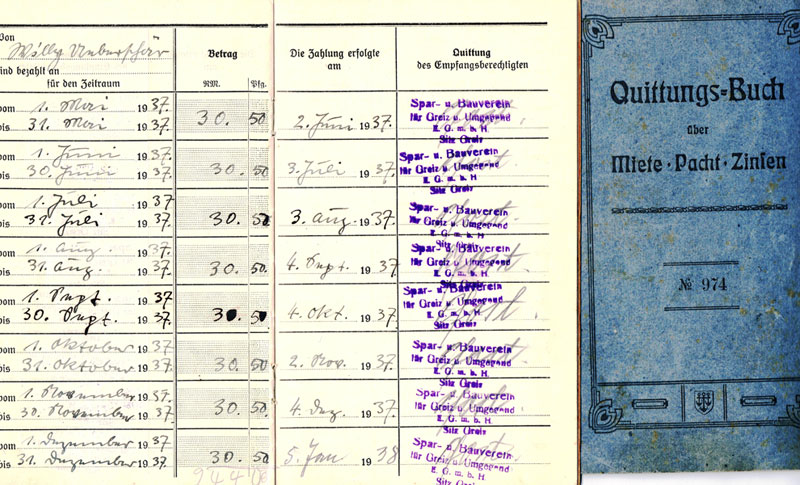 Von
Willy Ueberschär
sind bezahlt an
für den Zeitraum
Betrag
RM. Pfg.
Die Zahlung erfolgte
am
Quittung
des Empfangsberechtigten
vom 1. Mai 1937
bis 31. Mai 1937. 30. 50 2. Juni 1937.
Spar- u. Bauverein
für Greiz u. Umgegend
E. G. m. b. H
Sitz Greiz
vom 1. Juni 1937.
bis 30. Juni 1937. 30. 50 3. Juli 1937.
Spar- u. Bauverein
für Greiz u. Umgegend
E. G. m. b. H
Sitz Greiz
vom 1. Juli 1937
bis 31. Juli 1937 30. 50 3. Aug. 1937.
Spar- u. Bauverein
für Greiz u. Umgegend
E. G. m. b. H
Sitz Greiz
vom 1. Aug. 1937.
bis 31. Aug. 1937. 30. 50. 4. Sept. 1937
Spar- u. Bauverein
für Greiz u. Umgegend
E. G. m. b. H
Sitz Greiz
vom 1. Sept. 1937
bis 30. Sept. 1937. 30. 50 4. Okt. 1937.
Spar- u. Bauverein
für Greiz u. Umgegend
E. G. m. b. H
Sitz Greiz
vom 1. Oktober 1937
bis 31. Oktober 1937. 30. 50 2. Nov. 1937.
Spar- u. Bauverein
für Greiz u. Umgegend
E. G. m. b. H
Sitz Greiz
vom 1. November 1937.
bis 30. November 1937. 30. 50. 4. Dez. 1937.
Spar- u. Bauverein
für Greiz u. Umgegend
E. G. m. b. H.
Sitz Greiz
vom 1. Dezember 1937
bis 31. Dezember 1937. 30. 50 5. Jan 1938
Spar- u. Bauverein
für Greiz u. Umgegend
E. G. m. b. H
Sitz Greiz
Quittungs=Buch
über
Miete · Pacht · Zinsen
№ 974